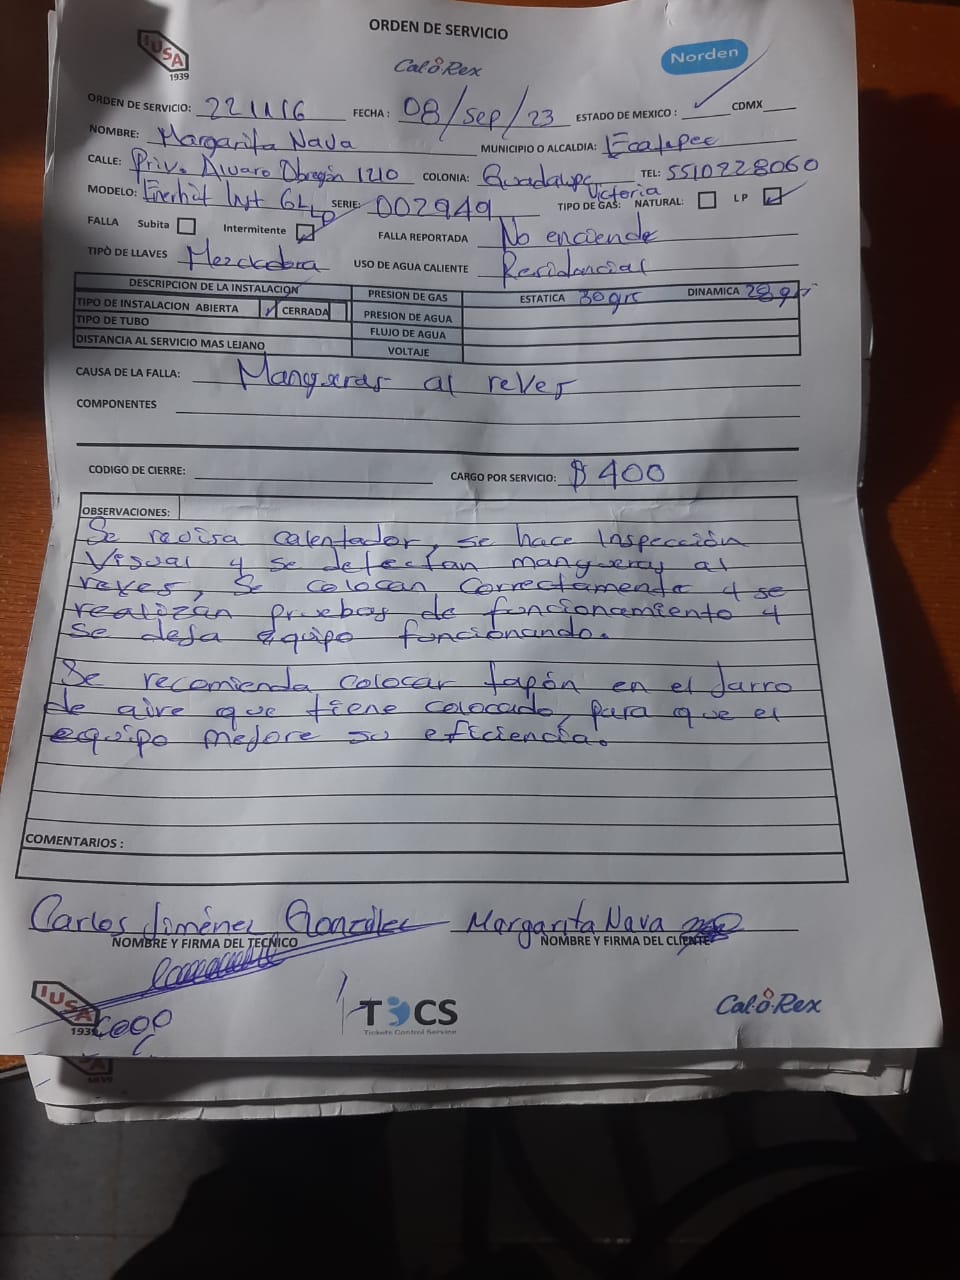 ORDEN DE SERVICIO
IUSA
1939
Cal-o-Rex
Norden
ORDEN DE SERVICIO: 221116 FECHA: 08/Sep/23 ESTADO DE MEXICO: ✓ CDMX
NOMBRE: Margarita Nava MUNICIPIO O ALCALDIA: Ecatepec
CALLE: Priv. Alvaro Obregón 1210 COLONIA: Guadalupe Victoria TEL: 5510228060
MODELO: Enerhit Inst 6L LP SERIE: 002949 TIPO DE GAS: NATURAL: LP ✓
FALLA Subita Intermitente ✓ FALLA REPORTADA No enciende
TIPÒ DE LLAVES Mezcladora USO DE AGUA CALIENTE Residencial
DESCRIPCION DE LA INSTALACION PRESION DE GAS ESTATICA 30grs DINAMICA 28grs
TIPO DE INSTALACION ABIERTA ✓ CERRADA PRESION DE AGUA
TIPO DE TUBO FLUJO DE AGUA
DISTANCIA AL SERVICIO MAS LEJANO VOLTAJE
CAUSA DE LA FALLA: Mangueras al reves
COMPONENTES
CODIGO DE CIERRE: CARGO POR SERVICIO: $400
OBSERVACIONES:
Se revisa calentador, se hace Inspección
Visual y se detectan mangueras al
reves, Se colocan correctamente y se
realizan pruebas de funcionamiento y
se deja equipo funcionando.
Se recomienda colocar tapón en el Jarro
de aire que tiene colocado, para que el
equipo mejore su eficiencia.
COMENTARIOS :
Carlos Jiménez González Margarita Nava
NOMBRE Y FIRMA DEL TECNICO NOMBRE Y FIRMA DEL CLIENTE
IUSA
1939
TCS
Tickets Control Service
Cal-o-Rex